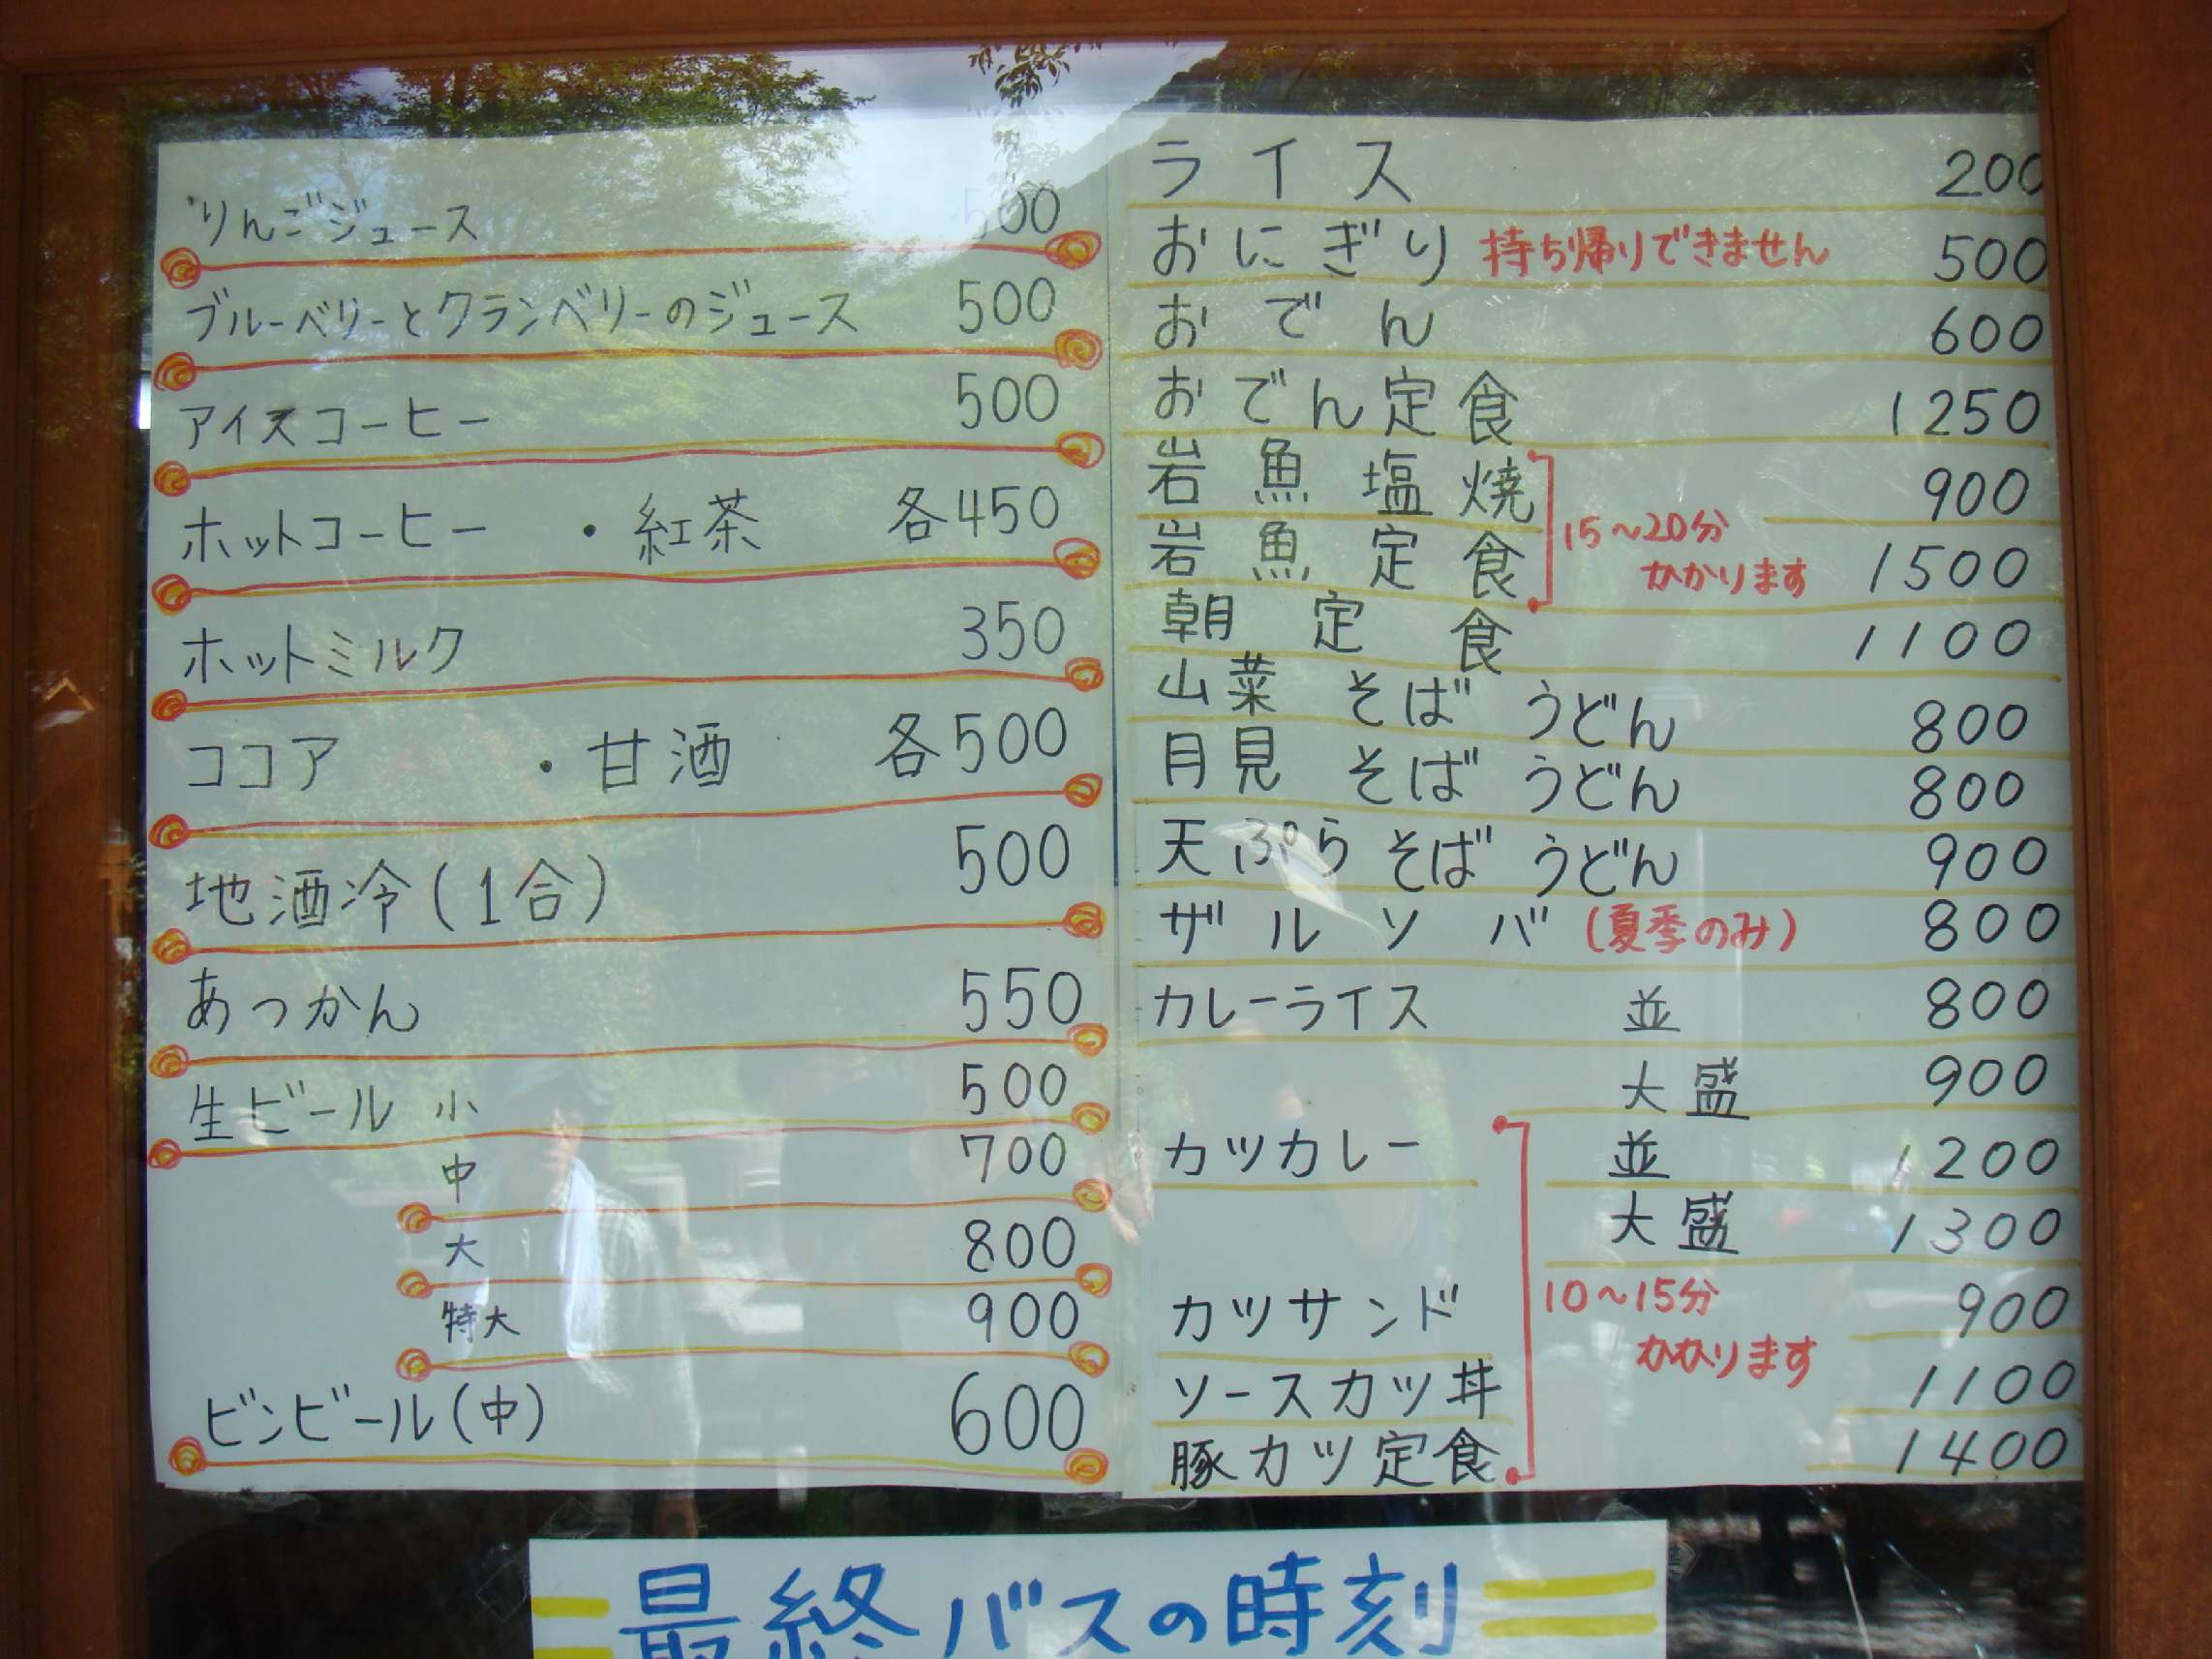 りんごジュース 500
ブルーベリーとクランベリーのジュース 500
アイスコーヒー 500
ホットコーヒー ・紅茶 各450
ホットミルク 350
ココア ・甘酒 各500
地酒冷(1合) 500
あつかん 550
生ビール 小 500
中 700
大 800
特大 900
ビンビール(中) 600
ライス 200
おにぎり 持ち帰りできません 500
おでん 600
おでん定食 1250
岩魚塩焼 900
岩魚定食 1500
15~20分
かかります
朝定食 1100
山菜 そば うどん 800
月見 そば うどん 800
天ぷら そば うどん 900
ザルソバ (夏季のみ) 800
カレーライス 並 800
大盛 900
カツカレー 並 1200
大盛 1300
カツサンド 900
ソースカツ丼 1100
豚カツ定食 1400
10~15分
かかります
最終バスの時刻